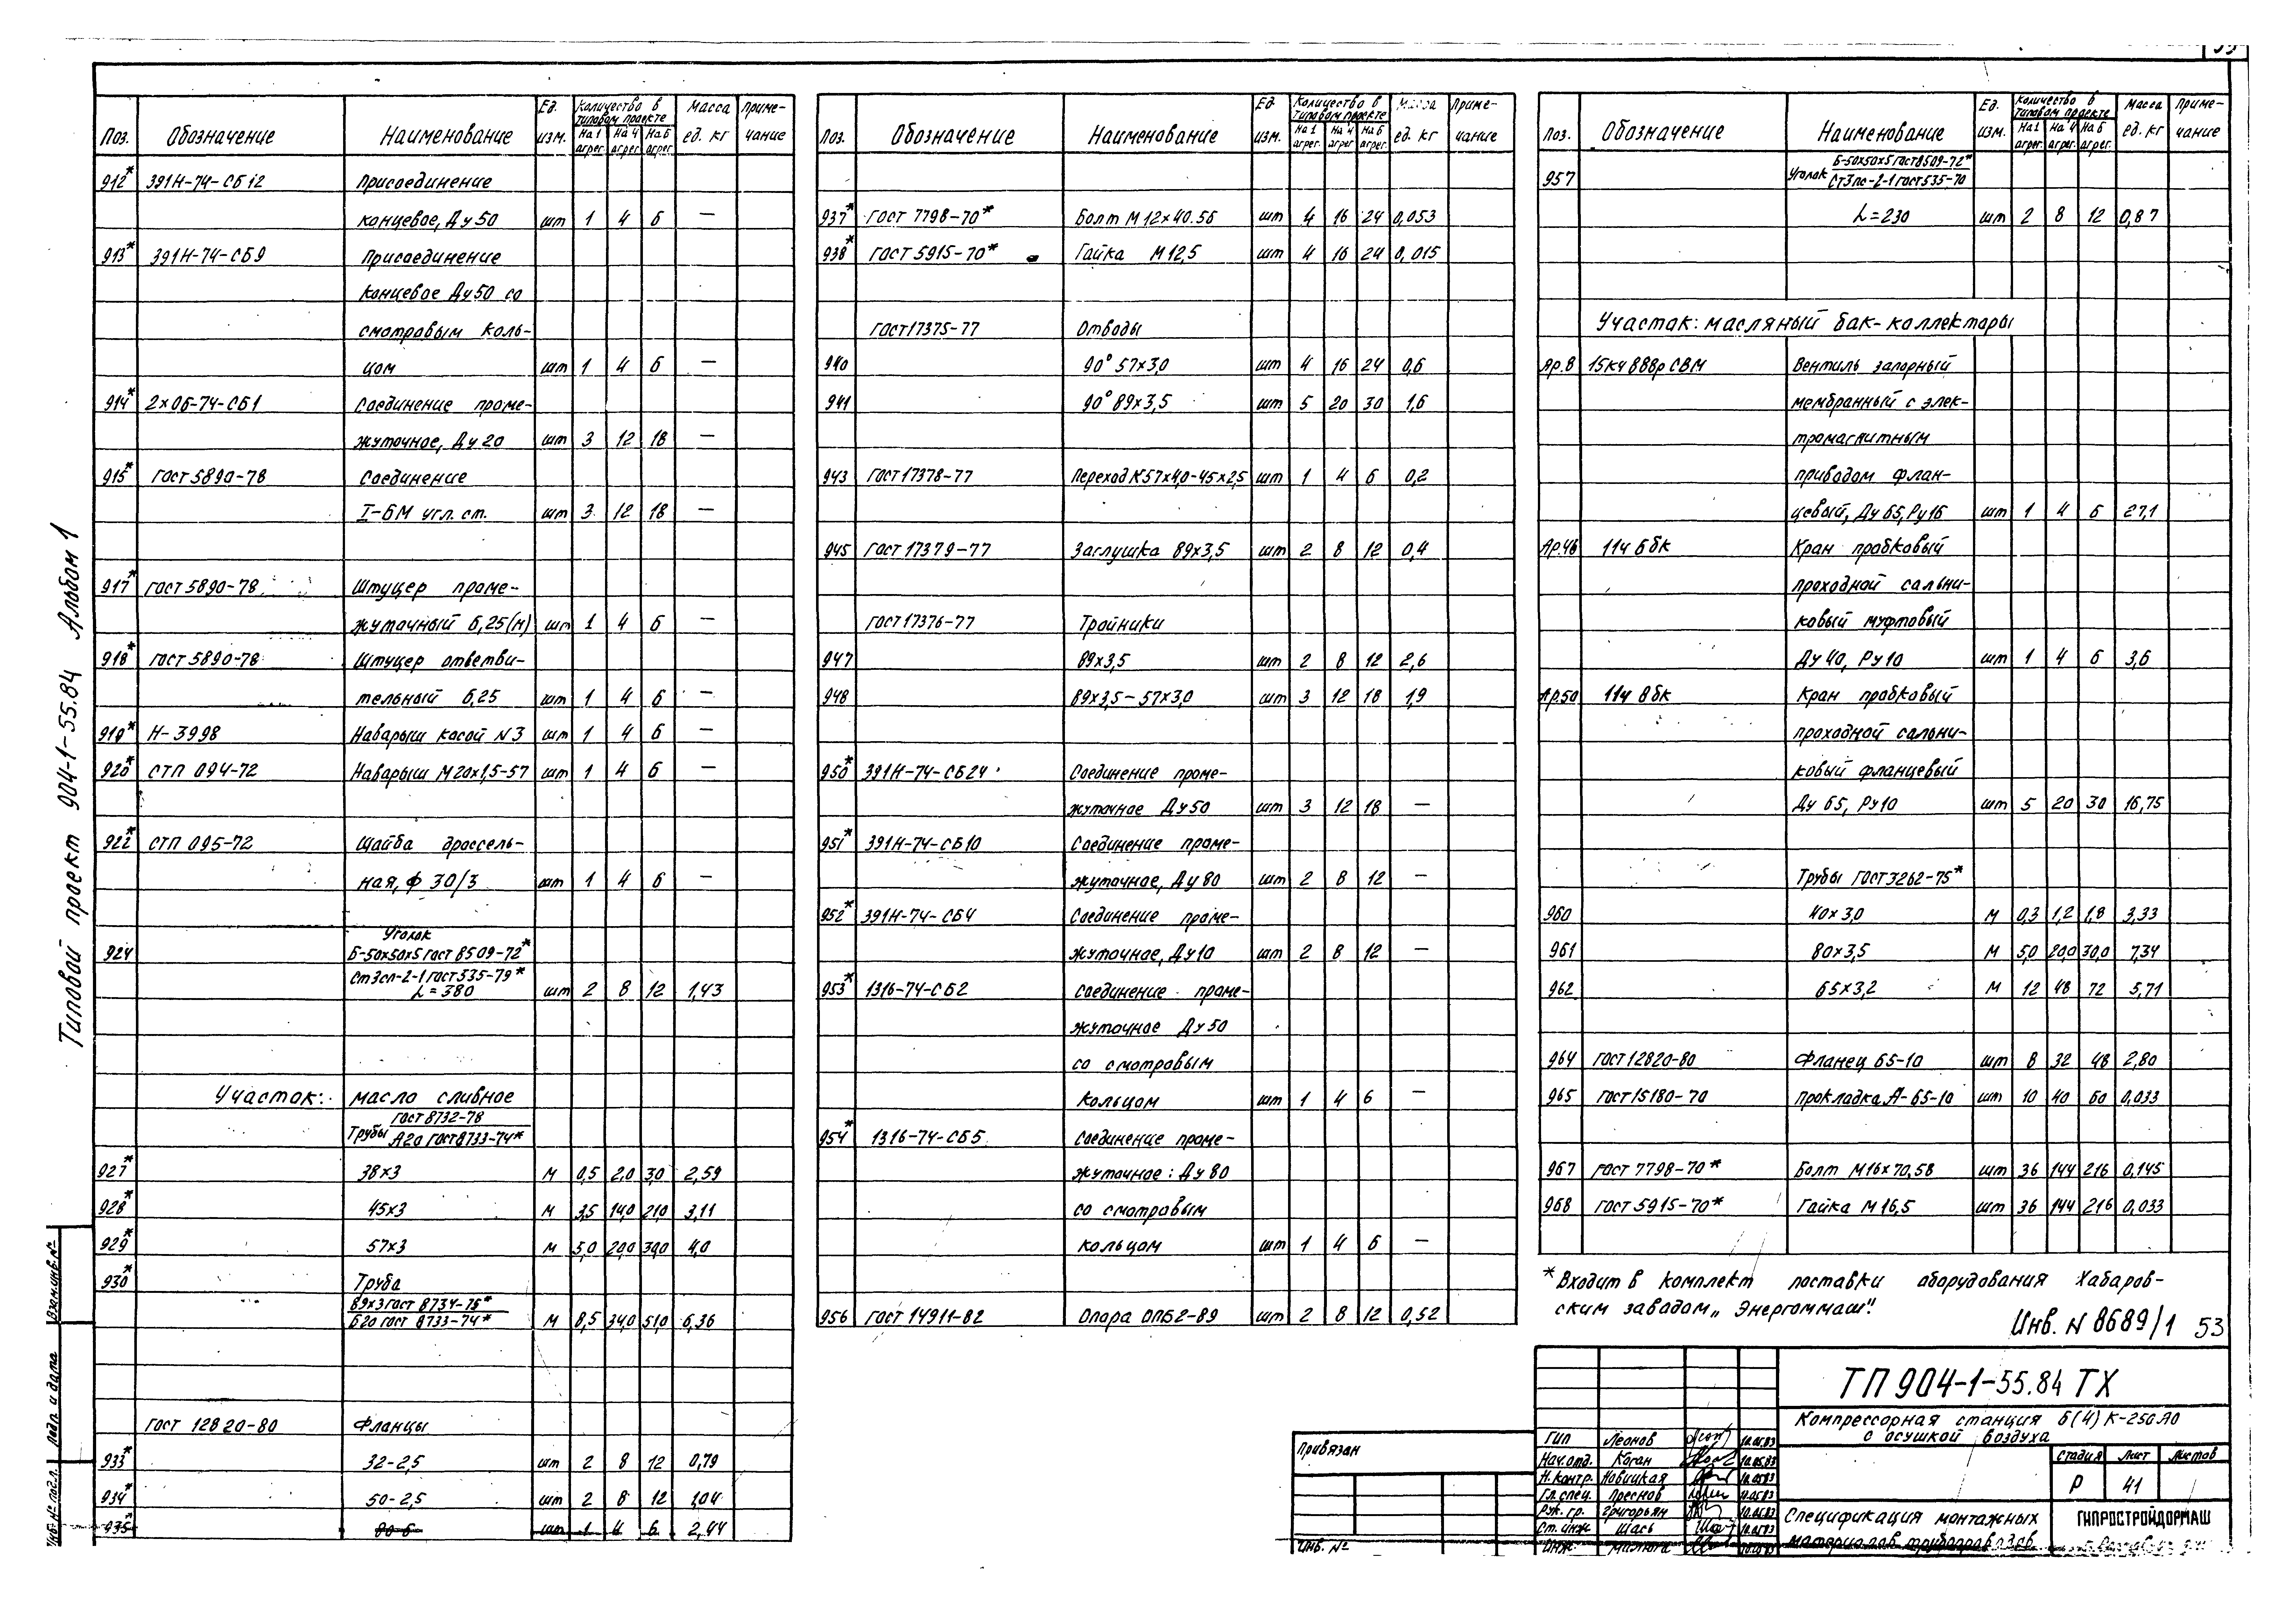 Типовой проект 904-1-55.84 Альбом 1
Поз. Обозначение Наименование Ед. изм. Количество в типовом проекте На 1 агрег. На 4 агрег. На 6 агрег. Масса ед. кг Примечание
912* 391Н-74-СБ12 Присоединение
концевое, Ду 50 шт 1 4 6 —
913* 391Н-74-СБ9 Присоединение
концевое Ду 50 со
смотровым коль-
цом шт 1 4 6 —
914* 2×06-74-СБ1 Соединение проме-
жуточное, Ду 20 шт 3 12 18 —
915* ГОСТ 5890-78 Соединение
I-6М угл. ст. шт 3 12 18 —
917* ГОСТ 5890-78 Штуцер проме-
жуточный 6,25(м) шт 1 4 6 —
918* ГОСТ 5890-78 Штуцер ответви-
тельный 6,25 шт 1 4 6 —
919* Н-3998 Наварыш косой N3 шт 1 4 6 —
920* СТП 094-72 Наварыш М20×1,5-57 шт 1 4 6 —
922* СТП 095-72 Шайба дроссель-
ная, ф 30/3 шт 1 4 6 —
Уголок
924 Б-50×50×5 ГОСТ 8509-72*
Ст3сп-2-1 ГОСТ 535-79*
L=380 шт 2 8 12 1,43
Участок: масло сливное
Трубы ГОСТ 8732-78
А20 ГОСТ 8733-74*
927* 38×3 М 0,5 2,0 3,0 2,59
928* 45×3 М 3,5 14,0 21,0 3,11
929* 57×3 М 5,0 20,0 30,0 4,0
930* Труба
89×3 ГОСТ 8734-75*
Б20 ГОСТ 8733-74* М 8,5 34,0 51,0 6,36
ГОСТ 12820-80 Фланцы
933* 32-2,5 шт 2 8 12 0,79
934* 50-2,5 шт 2 8 12 1,04
935* 80-6 шт 1 4 6 2,44
Поз. Обозначение Наименование Ед. изм. Количество в типовом проекте На 1 агрег. На 4 агрег. На 6 агрег. Масса ед. кг Примечание
937* ГОСТ 7798-70* Болт М12×40.56 шт 4 16 24 0,053
938* ГОСТ 5915-70* Гайка М12,5 шт 4 16 24 0,015
ГОСТ 17375-77 Отводы
940 90° 57×3,0 шт 4 16 24 0,6
941 90° 89×3,5 шт 5 20 30 1,6
943 ГОСТ 17378-77 Переход К57×4,0-45×2,5 шт 1 4 6 0,2
945 ГОСТ 17379-77 Заглушка 89×3,5 шт 2 8 12 0,4
ГОСТ 17376-77 Тройники
947 89×3,5 шт 2 8 12 2,6
948 89×3,5-57×3,0 шт 3 12 18 1,9
950* 391Н-74-СБ24 Соединение проме-
жуточное Ду 50 шт 3 12 18 —
951* 391Н-74-СБ10 Соединение проме-
жуточное, Ду 80 шт 2 8 12 —
952* 391Н-74-СБ4 Соединение проме-
жуточное, Ду10 шт 2 8 12 —
953* 1316-74-СБ2 Соединение проме-
жуточное Ду 50
со смотровым
кольцом шт 1 4 6 —
954* 1316-74-СБ5 Соединение проме-
жуточное: Ду 80
со смотровым
кольцом шт 1 4 6 —
956 ГОСТ 14911-82 Опора ОПБ2-89 шт 2 8 12 0,52
Поз. Обозначение Наименование Ед. изм. Количество в типовом проекте На 1 агрег. На 4 агрег. На 6 агрег. Масса ед. кг Примечание
957 Уголок Б-50×50×5 ГОСТ 8509-72*
Ст3пс-2-1 ГОСТ 535-70
L=230 шт 2 8 12 0,87
Участок: масляный бак-коллекторы
Ар.8 15кч 888р СВМ Вентиль запорный
мембранный с элек-
тромагнитным
приводом флан-
цевый, Ду 65, Ру 16 шт 1 4 6 27,1
Ар.46 11ч 6бк Кран пробковый
проходной сальни-
ковый муфтовый
Ду 40, Ру 10 шт 1 4 6 3,6
Ар.50 11ч 8бк Кран пробковый
проходной сальни-
ковый фланцевый
Ду 65, Ру 10 шт 5 20 30 16,75
Трубы ГОСТ 3262-75*
960 40×3,0 М 0,3 1,2 1,8 3,33
961 80×3,5 М 5,0 20,0 30,0 7,34
962 65×3,2 М 12 48 72 5,71
964 ГОСТ 12820-80 Фланец 65-10 шт 8 32 48 2,80
965 ГОСТ 15180-70 Прокладка А-65-10 шт 10 40 60 0,033
967 ГОСТ 7798-70* Болт М16×70,58 шт 36 144 216 0,145
968 ГОСТ 5915-70* Гайка М16,5 шт 36 144 216 0,033
*Входит в комплект поставки оборудования Хабаров-
ским заводом „Энергоммаш".
Инв. N 8689/1 53
ТП 904-1-55.84 ТХ
Компрессорная станция 6(4) К-250 ЛО
с осушкой воздуха
Стадия Лист Листов
Р 41
Спецификация монтажных
материалов трубопроводов
ГИПРОСТРОЙДОРМАШ
Привязан
Инв. №
ГИП Леонов 10.05.83
Нач.отд. Коган 10.05.83
Н.контр. Новицкая 10.05.83
Гл.спец. Преснов 10.05.83
Рук. гр. Григорьян 10.05.83
Ст.инж. Шась 10.05.83
Инж. 10.05.83
Взам.инв.№
Подп. и дата
Инв.№ подл.